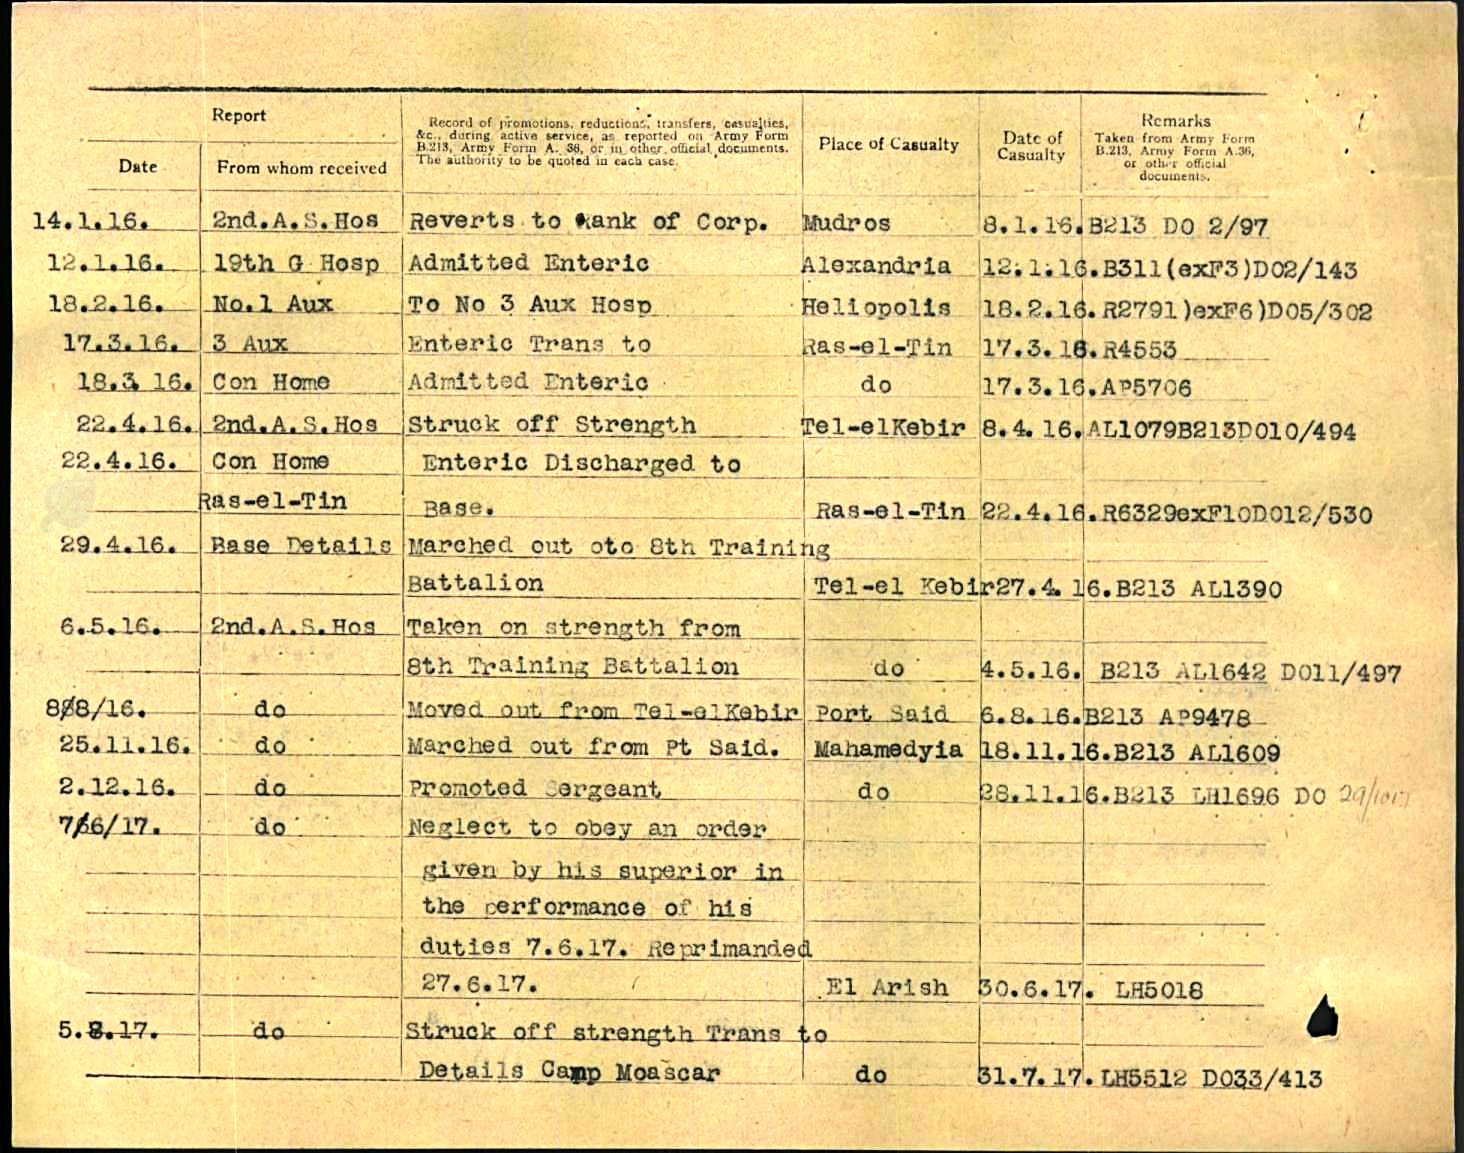 Report
Date
From whom received
Record of promotions, reductions, transfers, casualties,
&c., during active service, as reported on Army Form
B.213, Army Form A. 36, or in other official documents.
The authority to be quoted in each case.
Place of Casualty
Date of
Casualty
Remarks
Taken from Army Form
B.213, Army Form A.36,
or other official
documents.
14.1.16. 2nd.A.S.Hos Reverts to Rank of Corp. Mudros 8.1.16. B213 DO 2/97
12.1.16. 19th G Hosp Admitted Enteric Alexandria 12.1.16. B311(exF3)DO2/143
18.2.16. No.1 Aux To No 3 Aux Hosp Heliopolis 18.2.16. R2791)exF6)DO5/302
17.3.16. 3 Aux Enteric Trans to Ras-el-Tin 17.3.16. R4553
18.3 16. Con Home Admitted Enteric do 17.3.16. AP5706
22.4.16. 2nd.A.S.Hos Struck off Strength Tel-elKebir 8.4.16. AL1079B213DO10/494
22.4.16. Con Home Enteric Discharged to
Ras-el-Tin Base. Ras-el-Tin 22.4.16. R6329exF10DO12/530
29.4.16. Base Details Marched out oto 8th Training
Battalion Tel-el Kebir 27.4.16. B213 AL1390
6.5.16. 2nd.A.S.Hos Taken on strength from
8th Training Battalion do 4.5.16. B213 AL1642 DO11/497
8/8/16. do Moved out from Tel-elKebir Port Said 6.8.16. B213 AP9478
25.11.16. do Marched out from Pt Said. Mahamedyia 18.11.16. B213 AL1609
2.12.16. do Promoted Sergeant do 28.11.16. B213 LH1696 DO
7/6/17. do Neglect to obey an order
given by his superior in
the performance of his
duties 7.6.17. Reprimanded
27.6.17. El Arish 30.6.17. LH5018
5.8.17. do Struck off strength Trans to
Details Camp Moascar do 31.7.17. LH5512 DO33/413